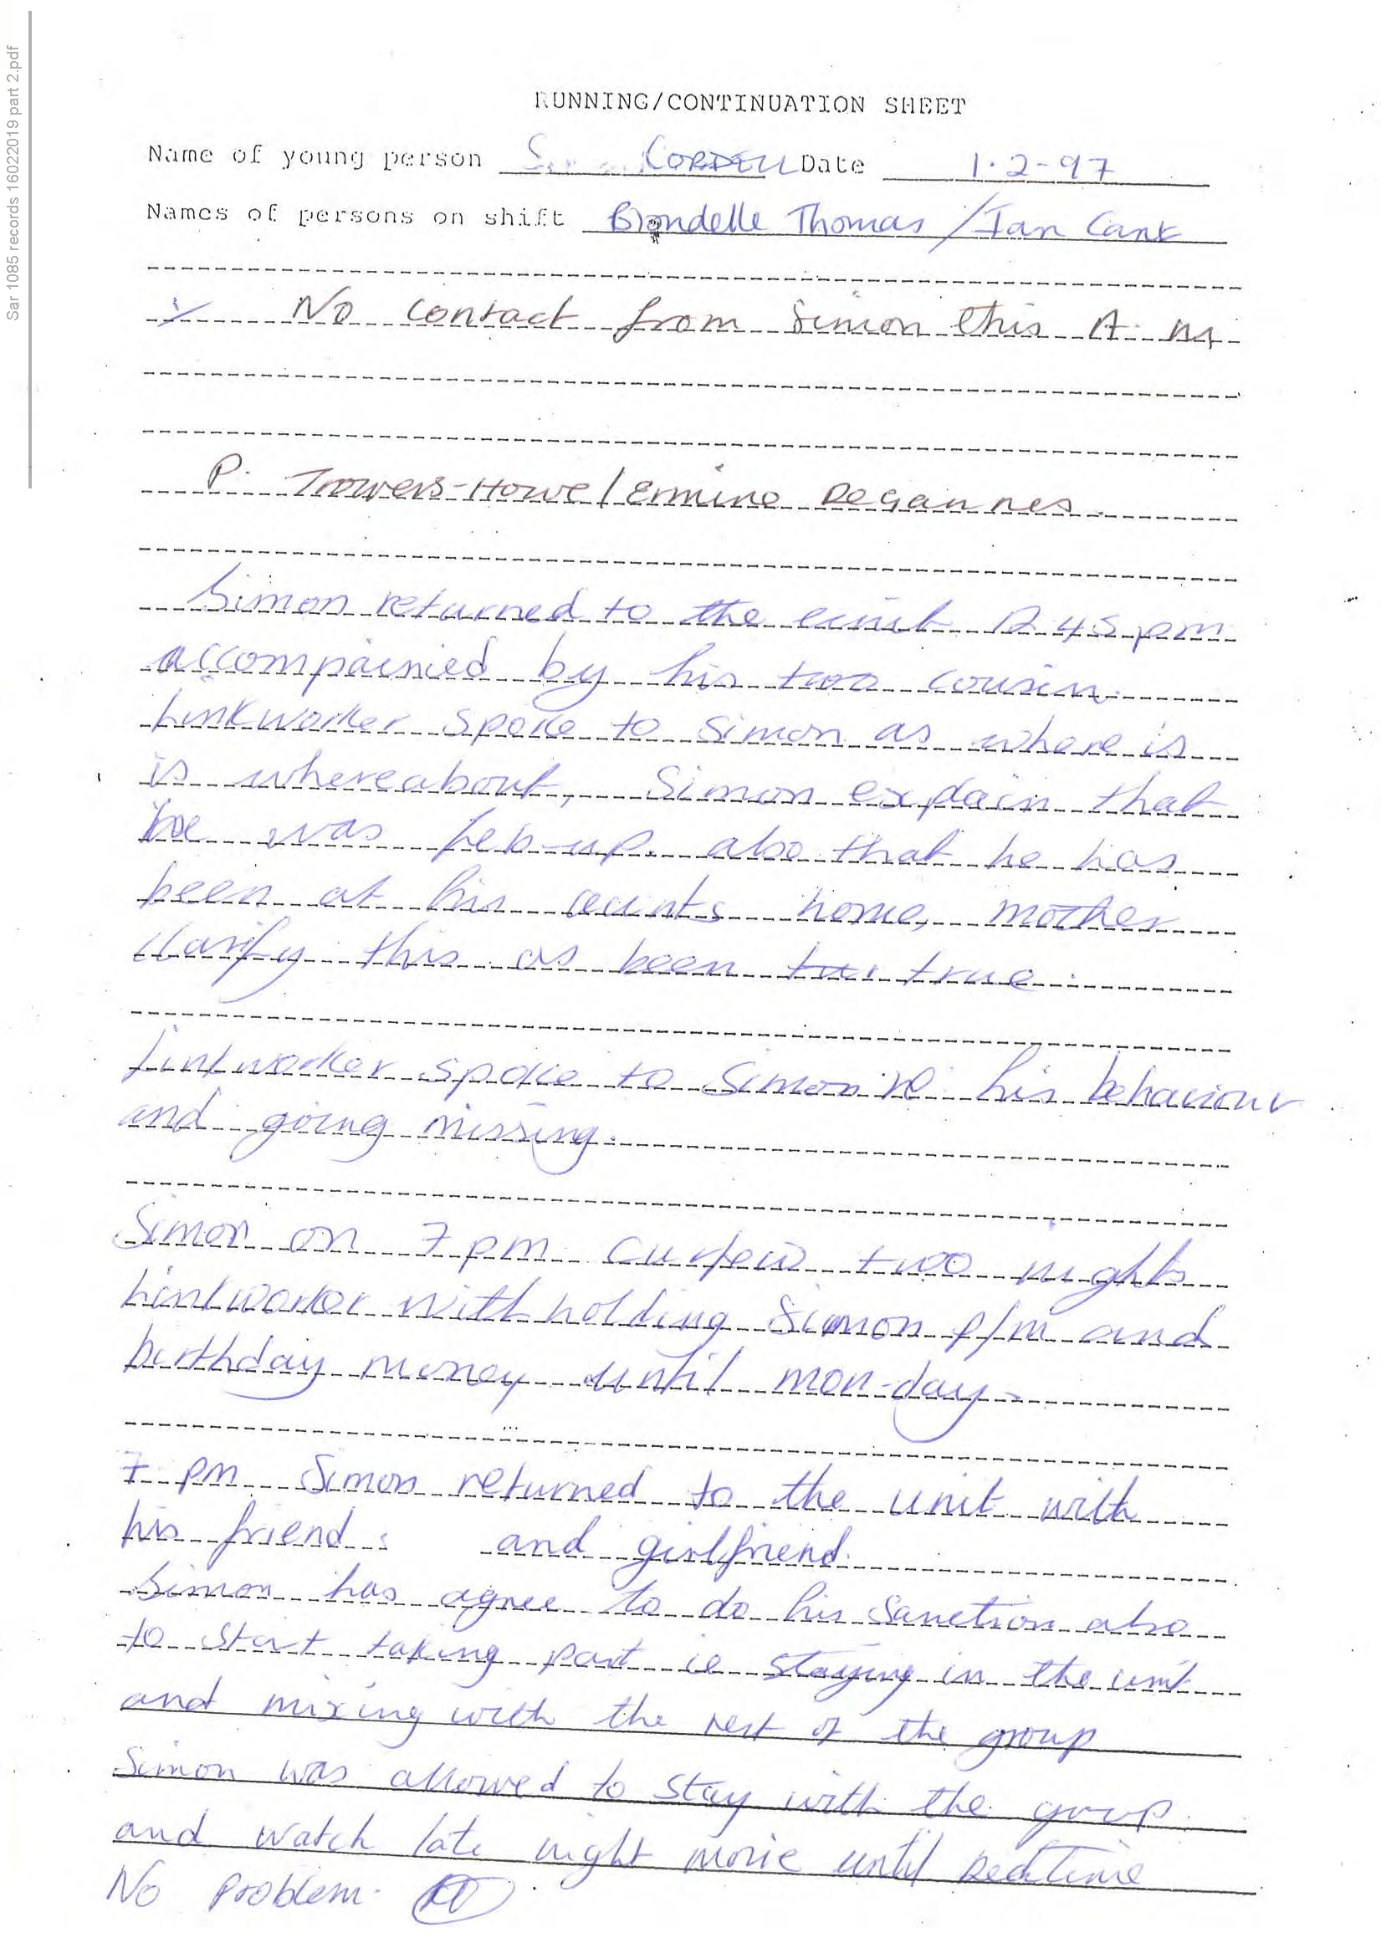 Sar 1085 records 16022019 part 2.pdf
RUNNING/CONTINUATION SHEET
Name of young person S CORDELL Date 1.2-97
Names of persons on shift Blondelle Thomas / Ian Cank
No contact from Simon this A.M
P. Trowers-Howe / Ermine Degannes.
Simon returned to the unit 12 45 pm
accompainied by his two cousin.
Linkworker spoke to Simon as where is
is whereabout, Simon explain that
he was feb-up. also that he has
been at his aunts home, mother
clarify this as been true.
Linkworker spoke to Simon re his behaviour
and going missing.
Simon on 7 pm curfew two nights
Linkworker withholding Simon p/m and
birthday money until mon-day.
7 pm Simon returned to the unit with
his friend and girlfriend.
Simon has agree to do his Sanction also
to start taking part ie staying in the unit
and mixing with the rest of the group
Simon was allowed to stay with the group
and watch late night movie until Bedtime
No Problem.